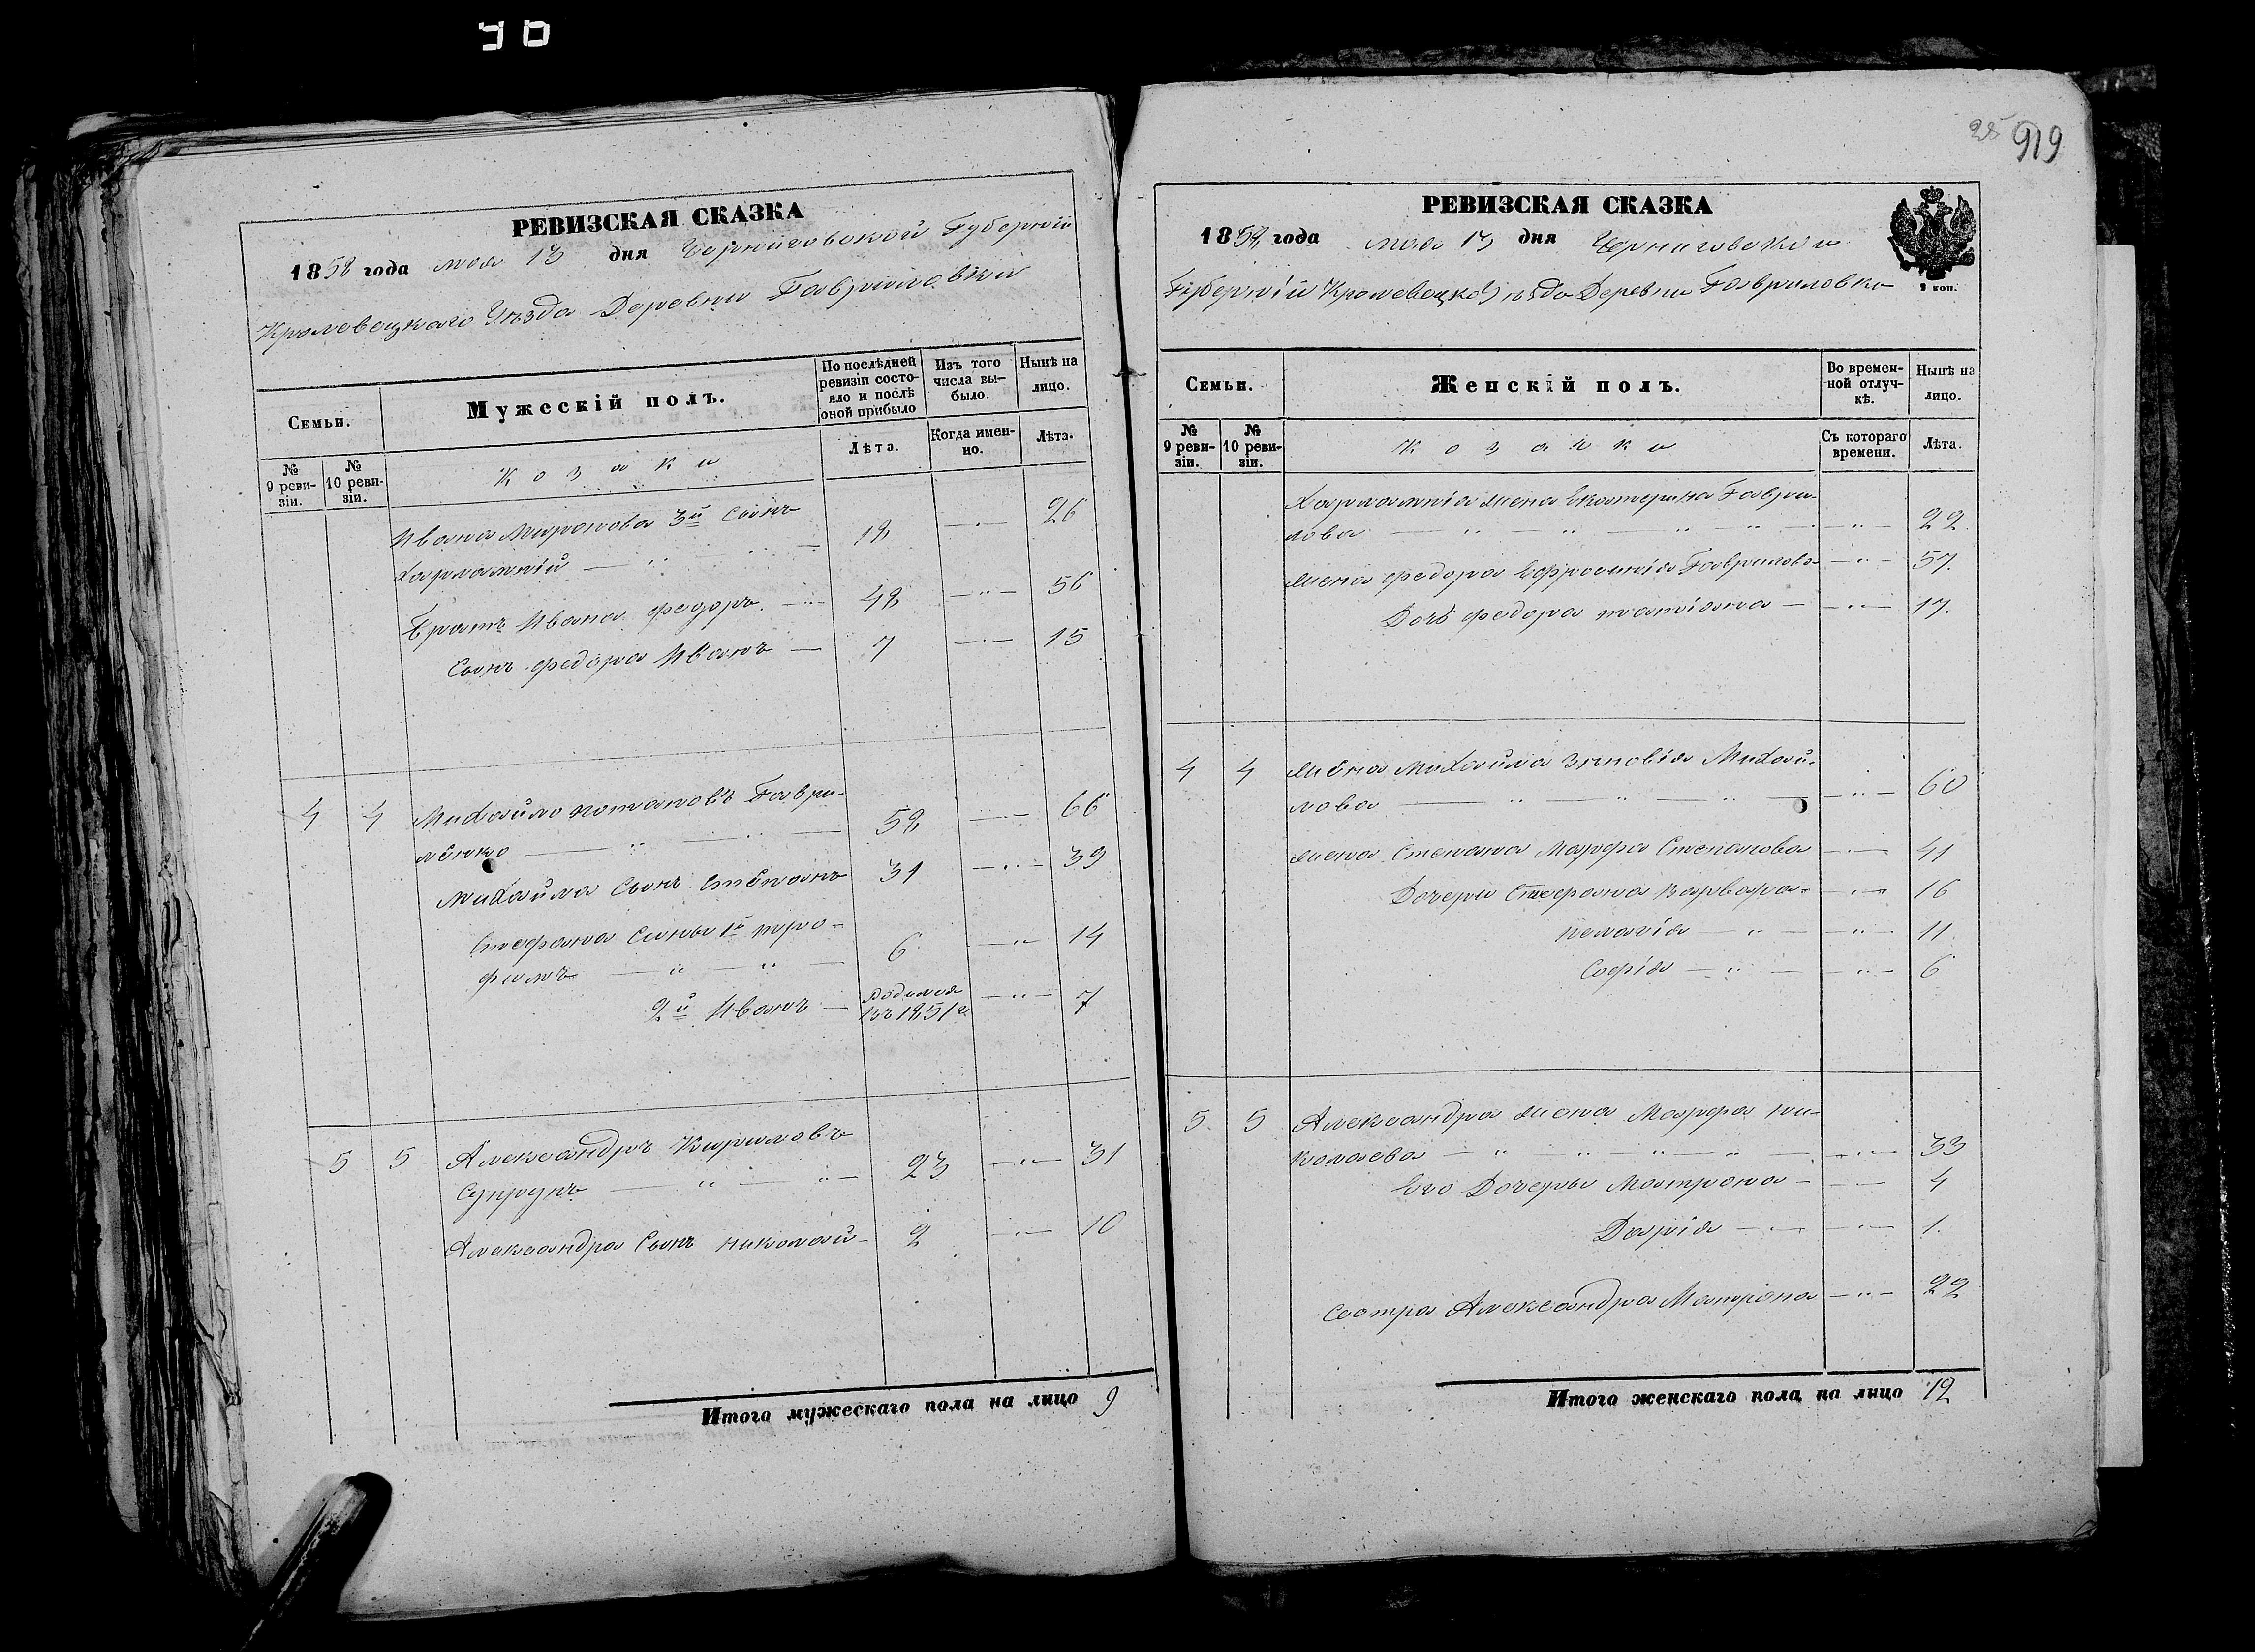 96
РЕВИЗСКАЯ СКАЗКА
1858 года мая 13 дня Черниговской Губерніи
Кролевецкаго Уѣзда Деревни Гавриловки
Семьи.
Мужескій полъ.
По послѣдней ревизіи состояло и послѣ оной прибыло
Изъ того числа выбыло.
Нынѣ на лицо.
№ 9 ревизіи.
№ 10 ревизіи.
Козаки
Лѣта.
Когда именно.
Лѣта.
Ивана Миронова 3й Сынъ
Харлампій — " — " — 18 — " — 26
Братъ Ивана Федоръ — " — 48 — " — 56
Сынъ Федора Иванъ — 7 — " — 15
4 4 Михайло Потаповъ Гаври-
ленко — " — " — 58 — " — 66
Михайла Сынъ Степанъ 31 — " — 39
Стефана Сыны 1й Тро-
фимъ — " — " — 6 — " — 14
2й Иванъ — родился въ 1851 г. — " — 7
5 5 Александръ Кириловъ
Супрунъ — " — " — 23 — " — 31
Александра Сынъ Николай — 2 — " — 10
Итого мужескаго пола на лицо 9
25 919
РЕВИЗСКАЯ СКАЗКА
1858 года мая 13 дня Черниговской
Губерніи Кролевецкаго уѣзда Деревни Гавриловки
2 коп.
Семьи.
Женскій полъ.
Во временной отлучкѣ.
Нынѣ на лицо.
№ 9 ревизіи.
№ 10 ревизіи.
Козачки
Съ котораго времени.
Лѣта.
Харлампія жена Екатерина Гаври-
лова — " — " — " — " — 22.
Жена Федора Ефросинія Гаврилова — " — 57.
Дочь Федора Татіана — — " — 17.
4 4 Жена Михайла Зиновія Михай-
лова — " — " — " — " — 60
Жена Степана Марфа Степанова — " — 41
Дочери Стефана Варвара — " — 16
Пелагія — " — — " — 11.
Софія — " — — " — 6
5. 5 Александра жена Марфа Ни-
колаева — " — " — " — " — " — 33
Его Дочери Матрона — — " — 4
Дарія — " — — " — 1.
Сестра Александра Матрона — " — 22
Итого женскаго пола на лицо 12